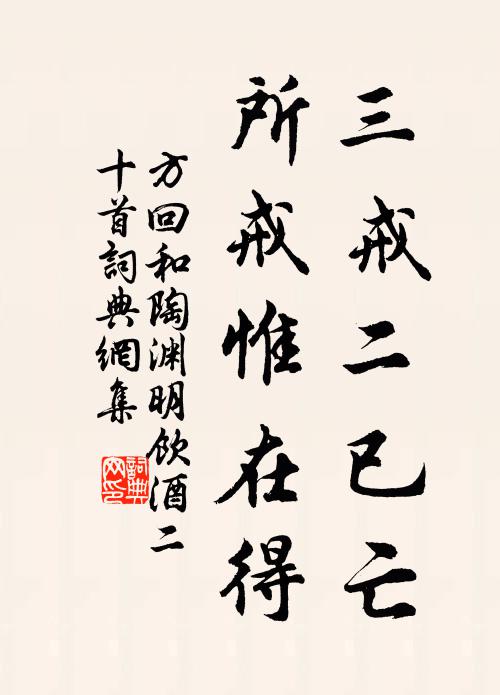 三戒二已亡
所戒惟在得
方回和陶渊明飲酒二
十首詞典網集
詞典
网印